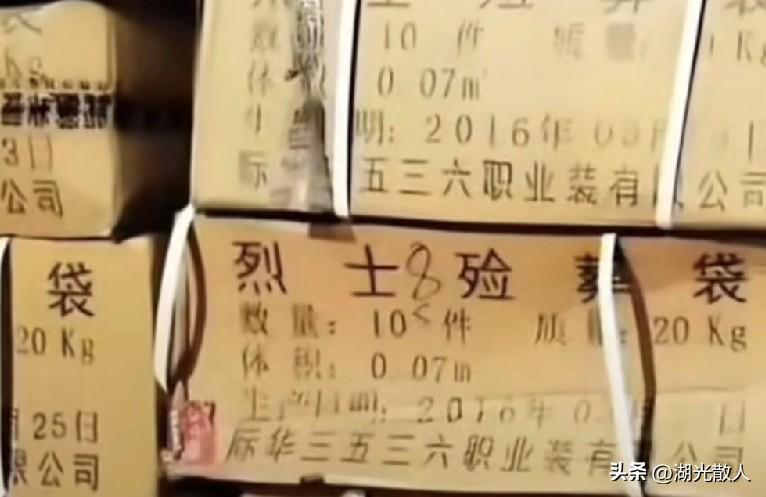 袋
3日
公司
数 10 件 质量: Kg
体 0.07㎡
生 期: 2016年 0
际 五三六职业装有限公司
袋
20 Kg
25日
限公司
烈士8殓葬袋
数量: 10 件 质量: 20 Kg
体积: 0.07m
生产日期: 2016年 0 日
际华三五三六职业装有限公司
头条 @湖光散人